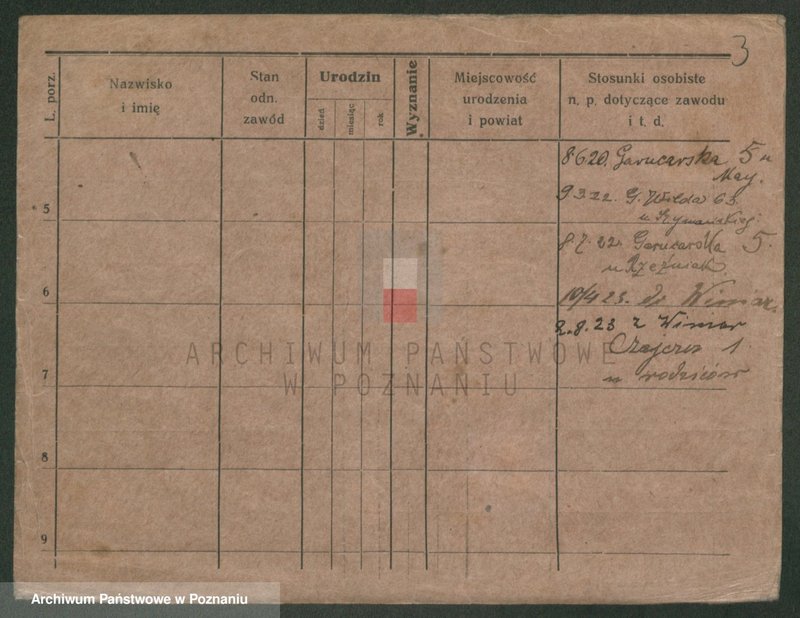 3
L. porz.
Nazwisko
i imię
Stan
odn.
zawód
Urodzin
dzień
miesiąc
rok
Wyznanie
Miejscowość
urodzenia
i powiat
Stosunki osobiste
n. p. dotyczące zawodu
i t. d.
8.6.20. Garncarska 5 u
May.
5
9.3.22. G. Wilda 63.
u Szymańskiej
8.7.22. Garncarska 5.
u Rzeźniak
6
10/4 23. do Winiar.
2.8.23 z Winiar
1.
u rodziców
7
8
9
ARCHIWUM PAŃSTWOWE
W POZNANIU
Archiwum Państwowe w Poznaniu